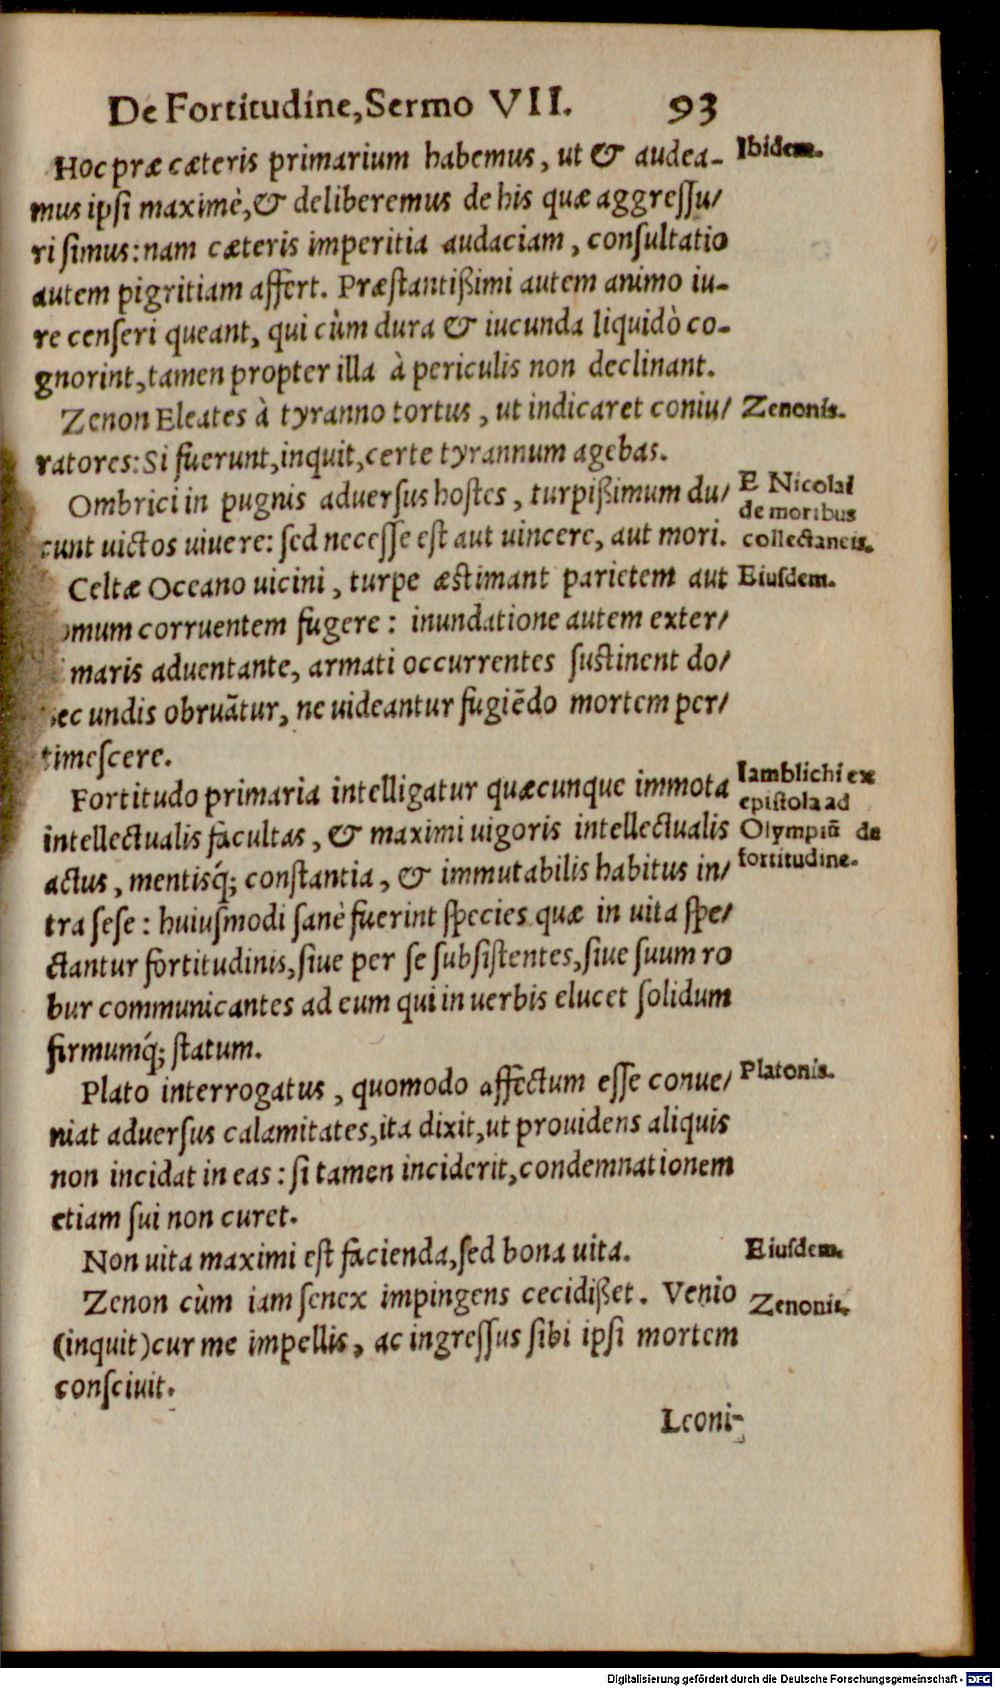 De Fortitudine, Sermo VII. 93
Hoc præ cæteris primarium habemus, ut & audea-
Ibidem.
mus ipsi maximè, & deliberemus de his quæ aggressu/
ri simus: nam cæteris imperitia audaciam, consultatio
autem pigritiam affert. Præstantißimi autem animo iu-
re censeri queant, qui cùm dura & iucunda liquidò co-
gnorint, tamen propter illa à periculis non declinant.
Zenon Eleates à tyranno tortus, ut indicaret coniu/
Zenonis.
ratores: Si fuerunt, inquit, certe tyrannum agebas.
Ombrici in pugnis adversus hostes, turpißimum du/
E Nicolai
de moribus
cunt uictos uiuere: sed necesse est aut uincere, aut mori.
collectaneis.
Celtæ Oceano uicini, turpe æstimant parietem aut
Eiusdem.
omum corruentem fugere: inundatione autem exter/
maris aduentante, armati occurrentes sustinent do/
ec undis obruãtur, ne uideantur fugiẽdo mortem per/
timescere.
Fortitudo primaria intelligatur quæcunque immota
Iamblichi ex
epistola ad
intellectualis facultas, & maximi uigoris intellectualis
Olympiũ de
actus, mentisq́; constantia, & immutabilis habitus in/
fortitudine.
tra sese: huiusmodi sanè fuerint species quæ in uita spe/
ctantur fortitudinis, siue per se subsistentes, siue suum ro
bur communicantes ad eum qui in uerbis elucet solidum
firmumq́; statum.
Plato interrogatus, quomodo affectum esse conue/
Platonis.
niat aduersus calamitates, ita dixit, ut prouidens aliquis
non incidat in eas: si tamen inciderit, condemnationem
etiam sui non curet.
Non uita maximi est facienda, sed bona uita.
Eiusdem.
Zenon cùm iam senex impingens cecidißet. Venio
Zenonis.
(inquit) cur me impellis, ac ingressus sibi ipsi mortem
consciuit.
Leoni-
Digitalisierung gefördert durch die Deutsche Forschungsgemeinschaft - DFG